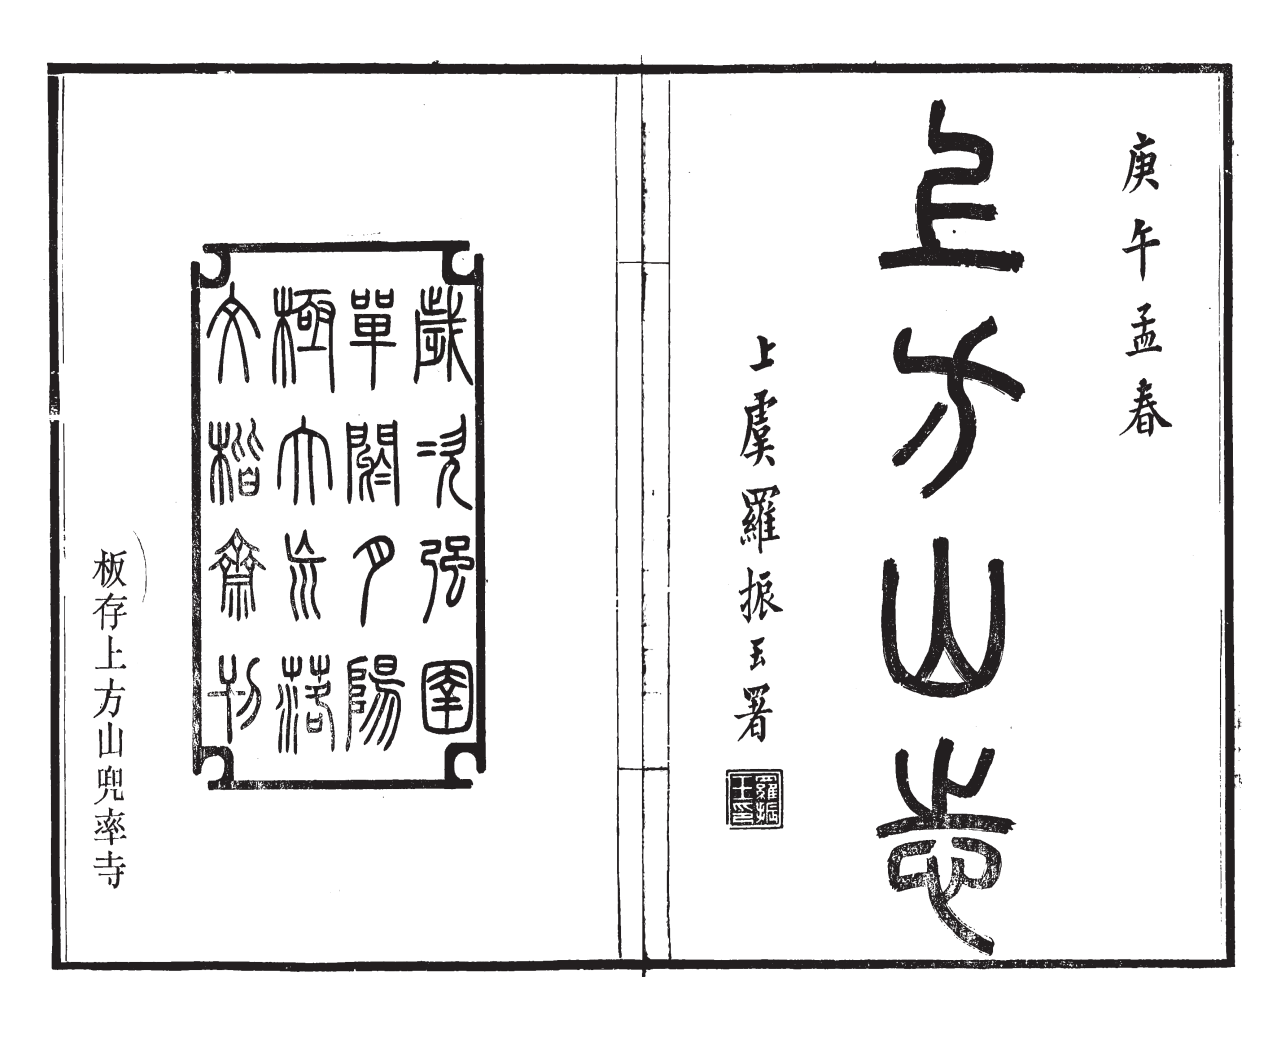 庚午孟春
上方山志
上虞羅振玉署
羅振玉印
歲次强圉
單閼月陽
極大荒落
文楷齋刊
板存上方山兜率寺